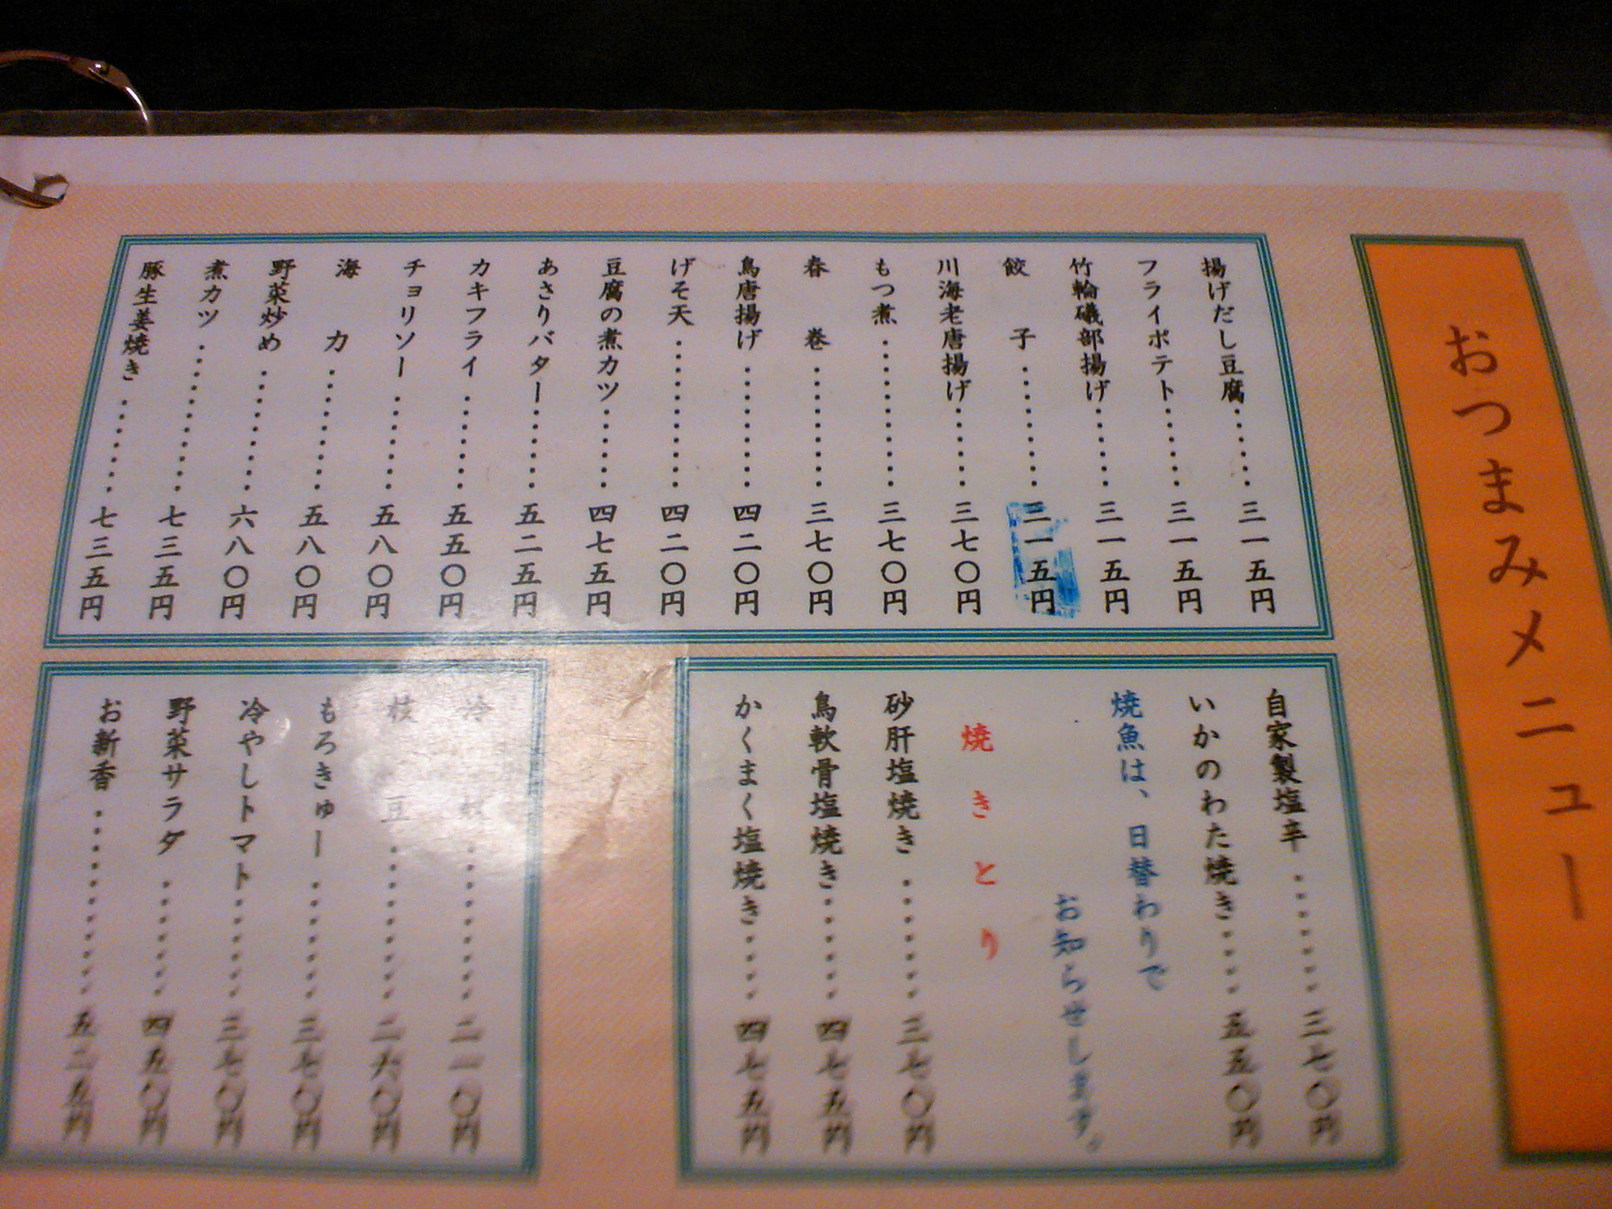 おつまみメニュー
揚げだし豆腐・・・・・・三一五円
フライポテト・・・・・・三一五円
竹輪磯部揚げ・・・・・・三一五円
餃子・・・・・・・・三一五円
川海老唐揚げ・・・・・・三七〇円
もつ煮・・・・・・・・・三七〇円
春巻・・・・・・・・三七〇円
鳥唐揚げ・・・・・・・・四二〇円
げそ天・・・・・・・・・四二〇円
豆腐の煮カツ・・・・・・四七五円
あさりバター・・・・・・五二五円
カキフライ・・・・・・・五五〇円
チョリソー・・・・・・・五八〇円
海力・・・・・・・・五八〇円
野菜炒め・・・・・・・・六八〇円
煮カツ・・・・・・・・・七三五円
豚生姜焼き・・・・・・・七三五円
自家製塩辛・・・・・・三七〇円
いかのわた焼き・・・・五五〇円
焼魚は、日替わりで
お知らせします。
焼きとり
砂肝塩焼き・・・・・・三七〇円
鳥軟骨塩焼き・・・・・四七五円
かくまく塩焼き・・・・四七五円
冷・・・・・・・・二一〇円
枝豆・・・・・・・・二六〇円
もろきゅー・・・・・・三七〇円
冷やしトマト・・・・・三七〇円
野菜サラダ・・・・・・四五〇円
お新香・・・・・・・・五二五円